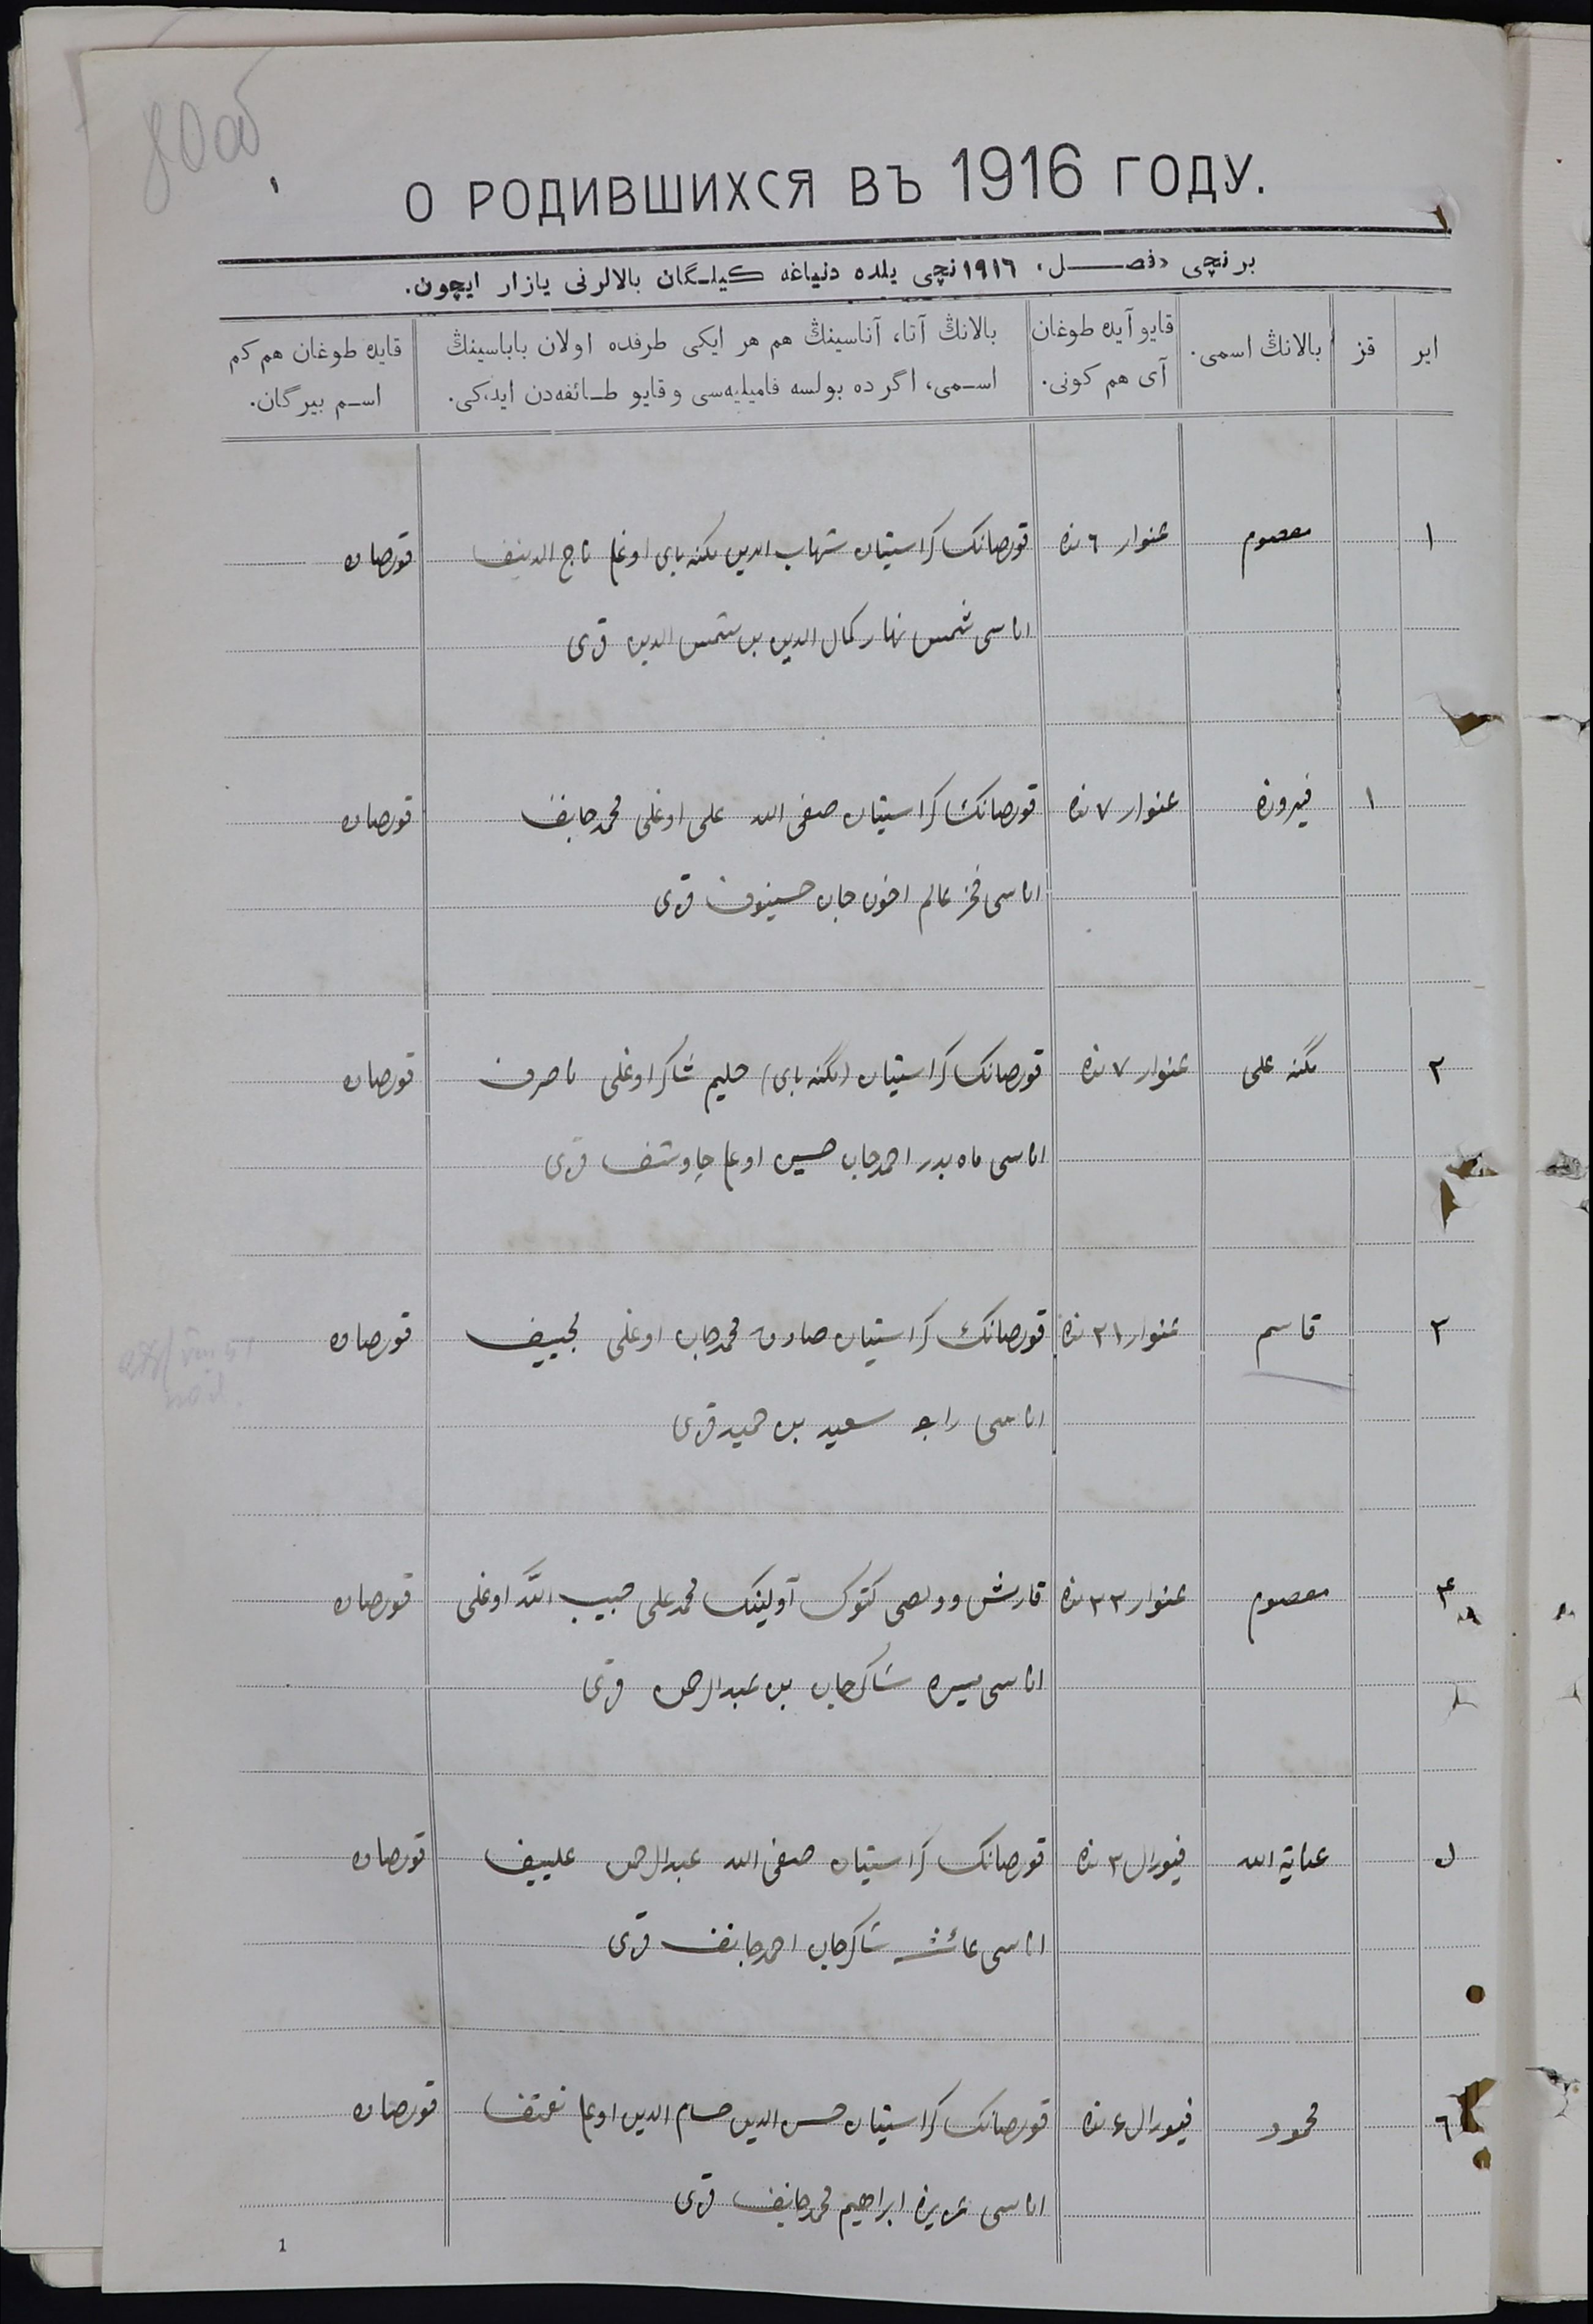 80об
О РОДИВШИХСЯ ВЪ 1916 ГОДУ.
برنچی «فصل» ١٩١٦ نچی یلده دنیاغه کیلگان بالالرنی یازار ایچون.
ایر
قز
بالانڭ اسمی.
قایو آیده طوغان
آی هم کونی.
بالانڭ آتا، آناسینڭ هم هر ایکی طرفده اولان باباسینڭ
اسمی، اگر ده بولسه فامیلیه‌سی و قایو طائفه‌دن ایدکی.
قایده طوغان هم کم
اسم بیرگان.
١ معصوم غنوار ٦ نده قورصانک کراستیان شهاب الدین بکنه بای اوغلی تاج الدینف قورصاده
اناسی شمس نهار کمال الدین بن شمس الدین قزی
١ فیروزه غنوار ٧ نده قورصانک کراستیان صفی الله علی اوغلی محمدجانف قورصاده
اناسی فخر عالم اخون جان حسینوف قزی
٢ بکنه علی غنوار ٧ نده قورصانک کراستیان (بکنه بای) حلیم شاکر اوغلی ناصرف قورصاده
اناسی ماه بدر احمدجان حسین اوغلی چاوشف قزی
٣ قاسم غنوار ٢١ نده قورصانک کراستیان صادق محمدجان اوغلی قورصاده
اناسی سعید بن حمید قزی
٤ معصوم غنوار ٢٣ نده قارش وولصی کتوک آولینک محمدعلی حبیب الله اوغلی قورصاده
اناسی شاکرجان بن عبدالرحمن قزی
٥ عنایة الله فیورال ٣ نده قورصانک کراستیان صفی الله عبدالرحمن علییف قورصاده
اناسی عائشه شاکرجان احمدجانف قزی
٦ محمود فیورال ٤ نده قورصانک کراستیان حسن الدین حسام الدین اوغلی قورصاده
اناسی عزیزه ابراهیم محمدجانف قزی
1